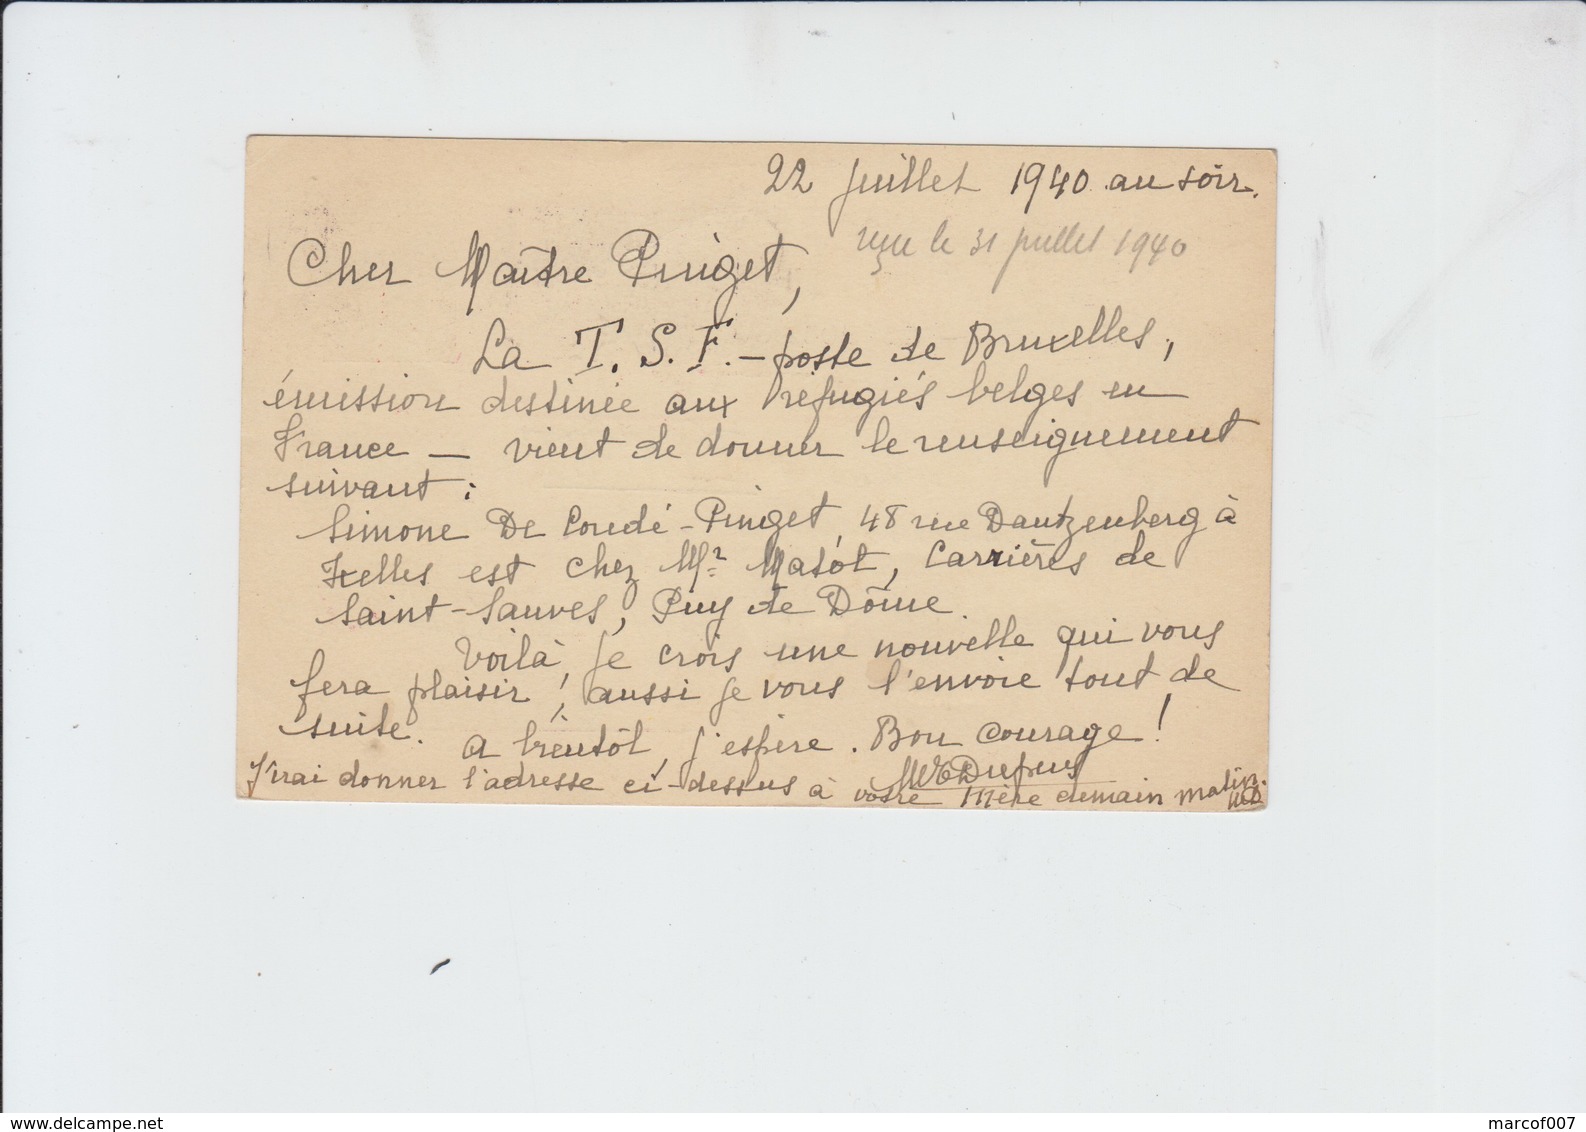 22 juillet 1940 au soir.
reçu le 31 juillet 1940
Cher Maître Pinget,
La T. S. F. – poste de Bruxelles,
émission destinée aux réfugiés belges en
France – vient de donner le renseignement
suivant :
Simone De Coudé-Pinget, 48 rue Dautzenberg à
Ixelles est chez Mr Matot, Carrières de
Saint-Sauves, Puy de Dôme
Voilà, je crois une nouvelle qui vous
fera plaisir ; aussi je vous l'envoie tout de
suite.
A bientôt, j'espère. Bon courage !
Dupuis
J'irai donner l'adresse ci-dessus à votre mère demain matin.
marcof007